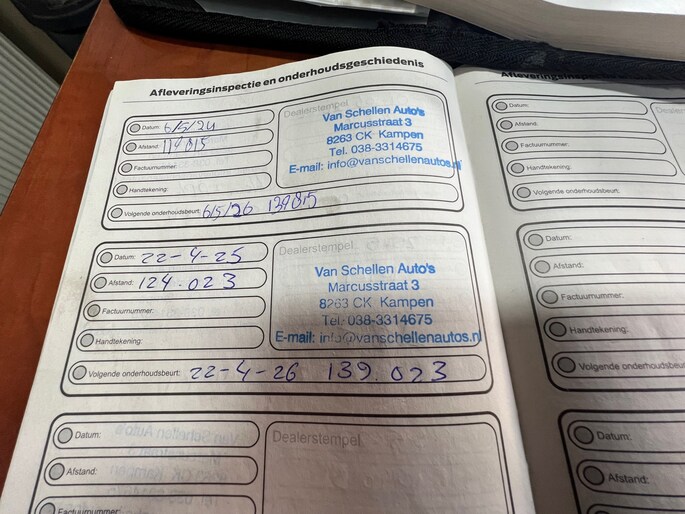 Afleveringsinspectie en onderhoudsgeschiedenis
Datum: 6/5/24
Afstand: 114815
Factuurnummer:
Handtekening:
Volgende onderhoudsbeurt: 6/5/26 139815
Dealerstempel
Van Schellen Auto's
Marcusstraat 3
8263 CK Kampen
Tel. 038-3314675
E-mail: info@vanschellenautos.nl
Datum: 22-4-25
Afstand: 124.023
Factuurnummer:
Handtekening:
Volgende onderhoudsbeurt: 22-4-26 139.023
Dealerstempel
Van Schellen Auto's
Marcusstraat 3
8263 CK Kampen
Tel. 038-3314675
E-mail: info@vanschellenautos.nl
Datum:
Afstand:
Factuurnummer:
Dealerstempel
Afleveringsinsp
Datum:
Afstand:
Factuurnummer:
Handtekening:
Volgende onderhoudsbeurt:
Datum:
Afstand:
Factuurnummer:
Handtekening:
Volgende onderhoudsbeurt
Datum:
Afstand: